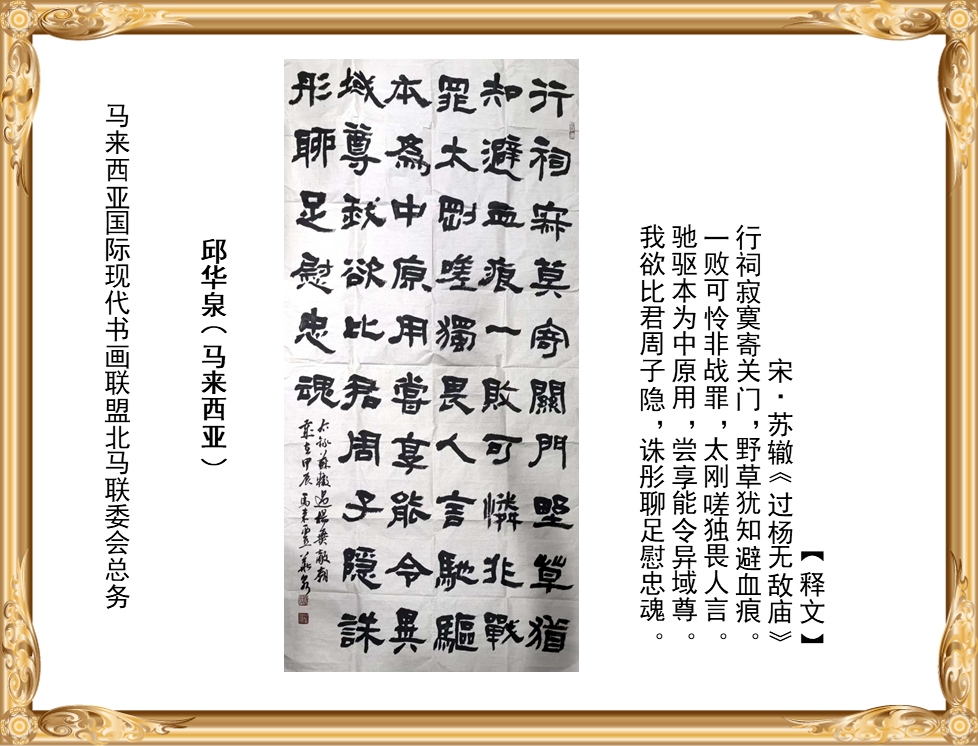 【释文】
宋·苏辙《过杨无敌庙》
行祠寂寞寄关门，野草犹知避血痕。
一败可怜非战罪，太刚嗟独畏人言。
驰驱本为中原用，尝享能令异域尊。
我欲比君周子隐，诛彤聊足慰忠魂。
行祠寂莫寄關門野草猶
知避血痕一敗可憐非戰
罪太剛嗟獨畏人言馳驅
本為中原用嘗享能令異
域尊我欲比君周子隱誅
彤聊足慰忠魂
蘇轍過楊無敵廟
歲在甲辰馬來西亞華泉
邱华泉（马来西亚）
马来西亚国际现代书画联盟北马联委会总务